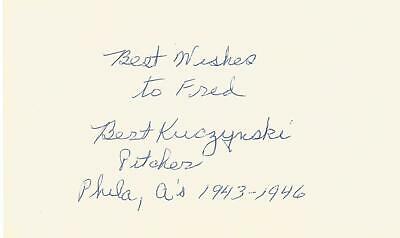 Best Wishes
to Fred
Bert Kuczynski
Pitcher
Phila, A's 1943-1946